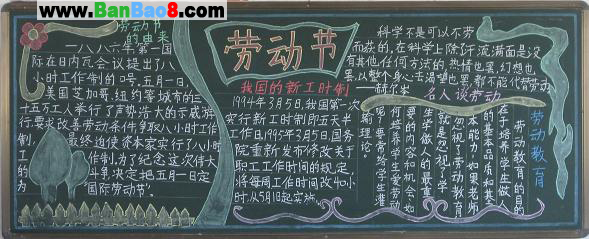 www.BanBao8.com
劳动节
的由来
一八八六年,第一国
际在日内瓦会议提出了八
小时工作制的口号,五月一日,
美国芝加哥,纽约等城市的三
十五万工人举行了声势浩大的示威游
行,要求改善劳动条件,争取八小时工作
制,最终迫使资本家实行了八小时
工作制,为了纪念这次伟大
的斗争,决定把五月一日定
为国际劳动节".
劳动节
我国的新工时制
1994年3月5日,我国第一次
实行新工时制即五天半
工作日.1995年3月5日,国务
院重新发布修改关于
职工工作时间的规定,
将每周工作时间改40小
时,从5月1起实施.
科学不是可以不劳
而获的,在科学上除了汗流满面是没
有其他任何方法的,热情也罢,幻想也
罢,以整个身心去渴望也罢,都不能代替劳动
——赫尔岑
名人谈劳动
劳动教育
劳动教育的目的
在于培养学生做人
的基本品质和其
本能力.如果老师
忽视了劳动教育
就是忽视了学
生学做人的最重
要的内容和机会.如
何培养学生爱劳动
呢?要常给学生灌
输理论。